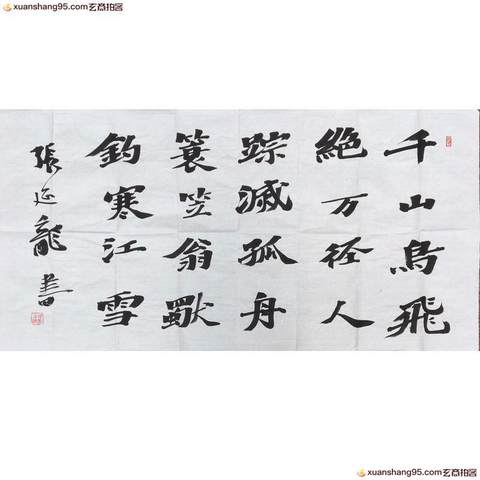 xuanshang95.com玄商拍客
千山鳥飛
絶万径人
踪滅孤舟
蓑笠翁獨
釣寒江雪
張延龍書
xuanshang95.com玄商拍客